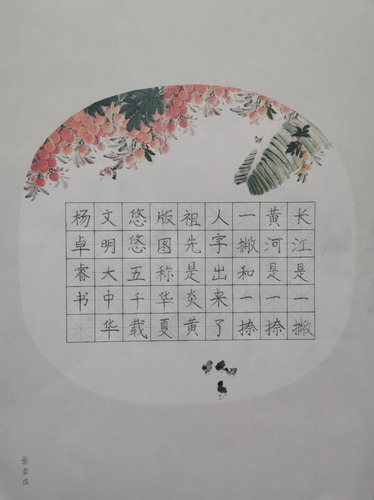 长江是一撇
黄河是一捺
一撇和一捺
人字出来了
祖先是炎黄
版图称华夏
悠悠五千载
文明大中华
杨卓睿书